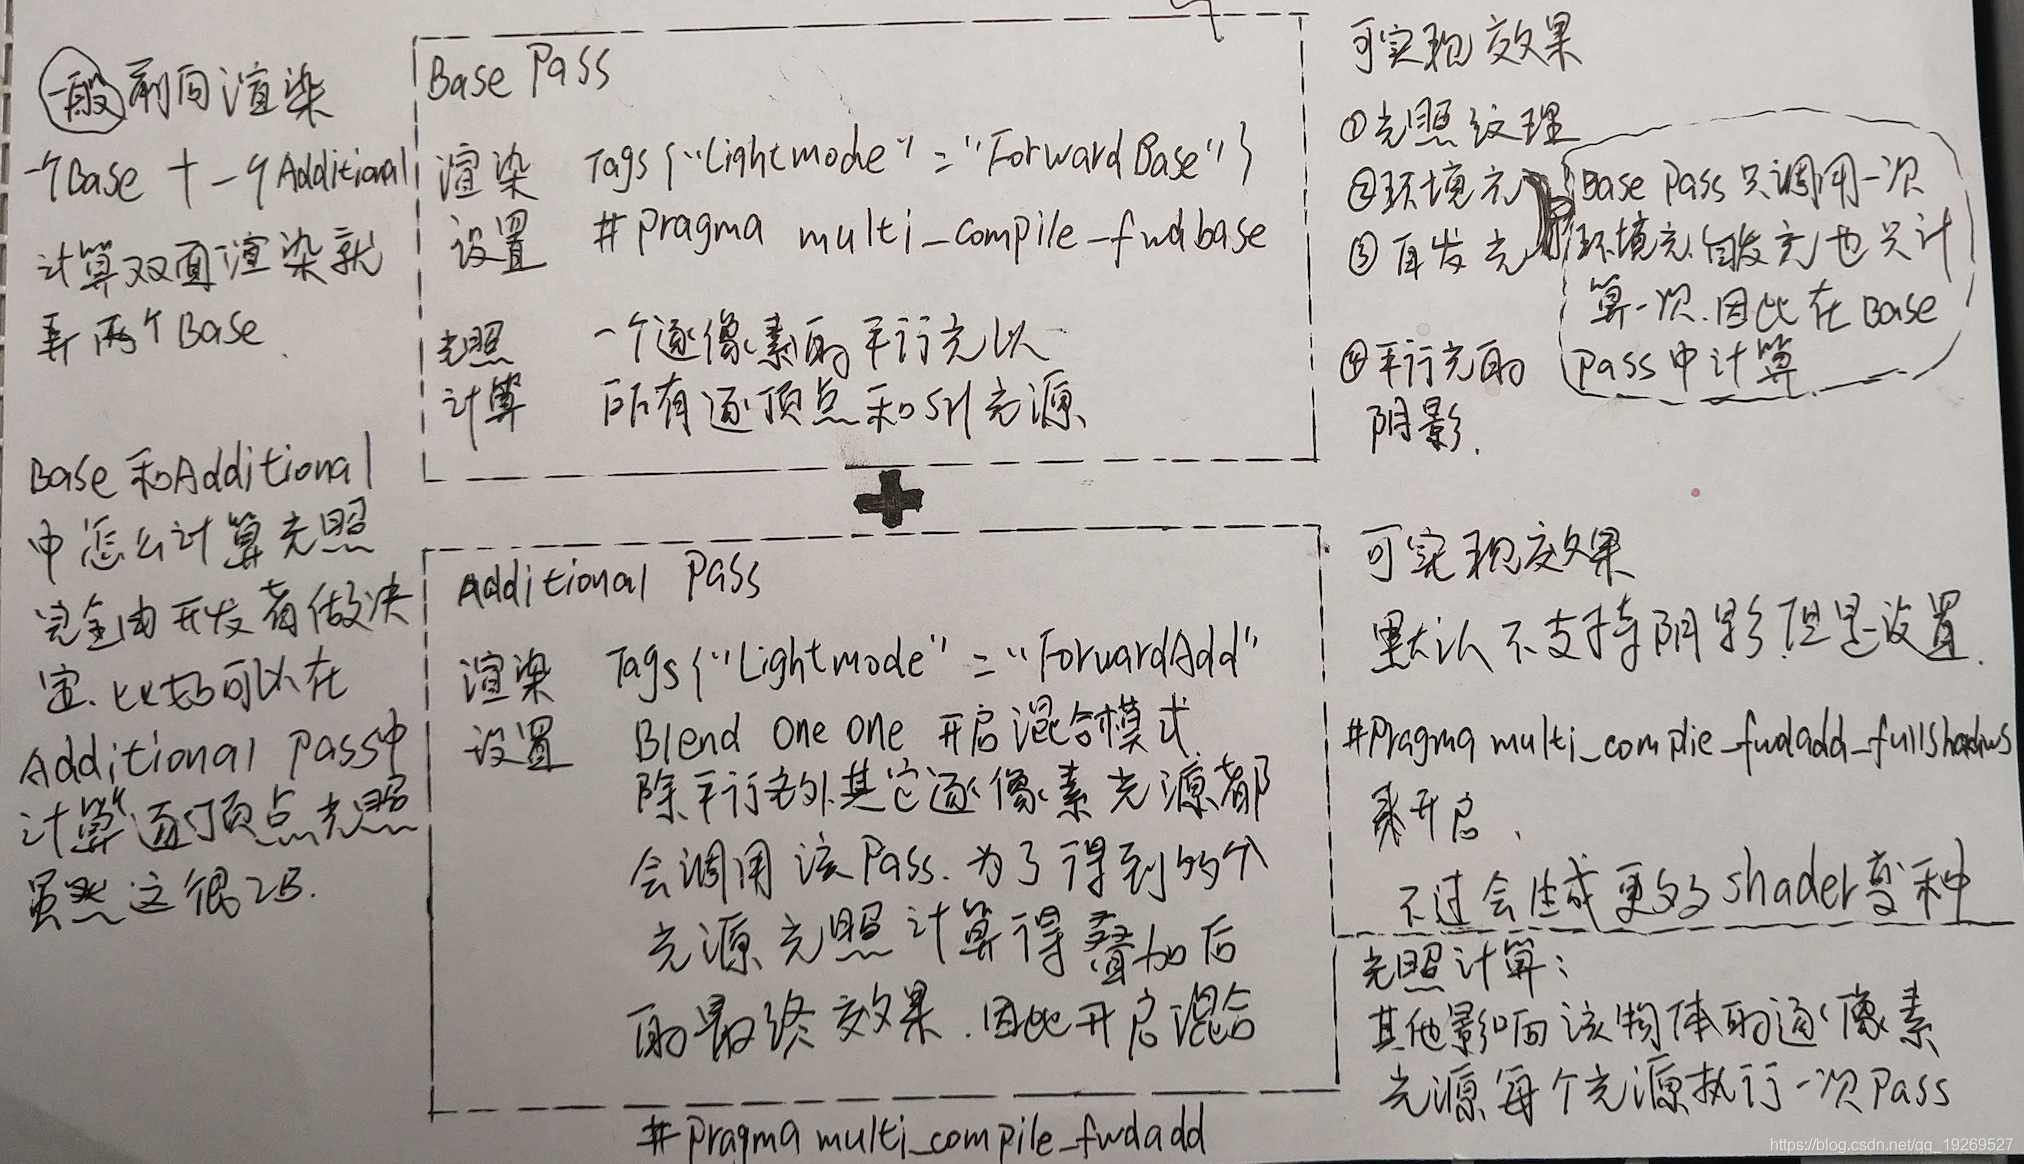 一般前向渲染
一个Base + 一个Additional
计算双面渲染就
弄两个Base.
Base和Additional
中怎么计算光照
完全由开发者做决
定.比如可以在
Additional Pass中
计算逐顶点光照
虽然这很2B.
Base Pass
渲染 Tags{"Lightmode" = "ForwardBase"}
设置 #pragma multi_compile_fwdbase
光照 一个逐像素的平行光以
计算 所有逐顶点和SH光源
Additional Pass
渲染 Tags{"Lightmode" = "ForwardAdd"
设置 Blend One One 开启混合模式
除平行光外其它逐像素光源都
会调用该Pass.为了得到多个
光源光照计算得叠加后
的最终效果.因此开启混合
#pragma multi_compile_fwdadd
可实现效果
①光照纹理
②环境光
③自发光
④平行光的
阴影.
Base Pass只调用一次
环境光.自发光也只计
算一次.因此在Base
Pass中计算
可实现效果
默认不支持阴影.但是设置.
#Pragma multi_complie_fwdadd_fullshadows
来开启.
不过会生成更多的shader变种
光照计算:
其他影响该物体的逐像素
光源每个光源执行一次Pass
https://blog.csdn.net/qq_19269527